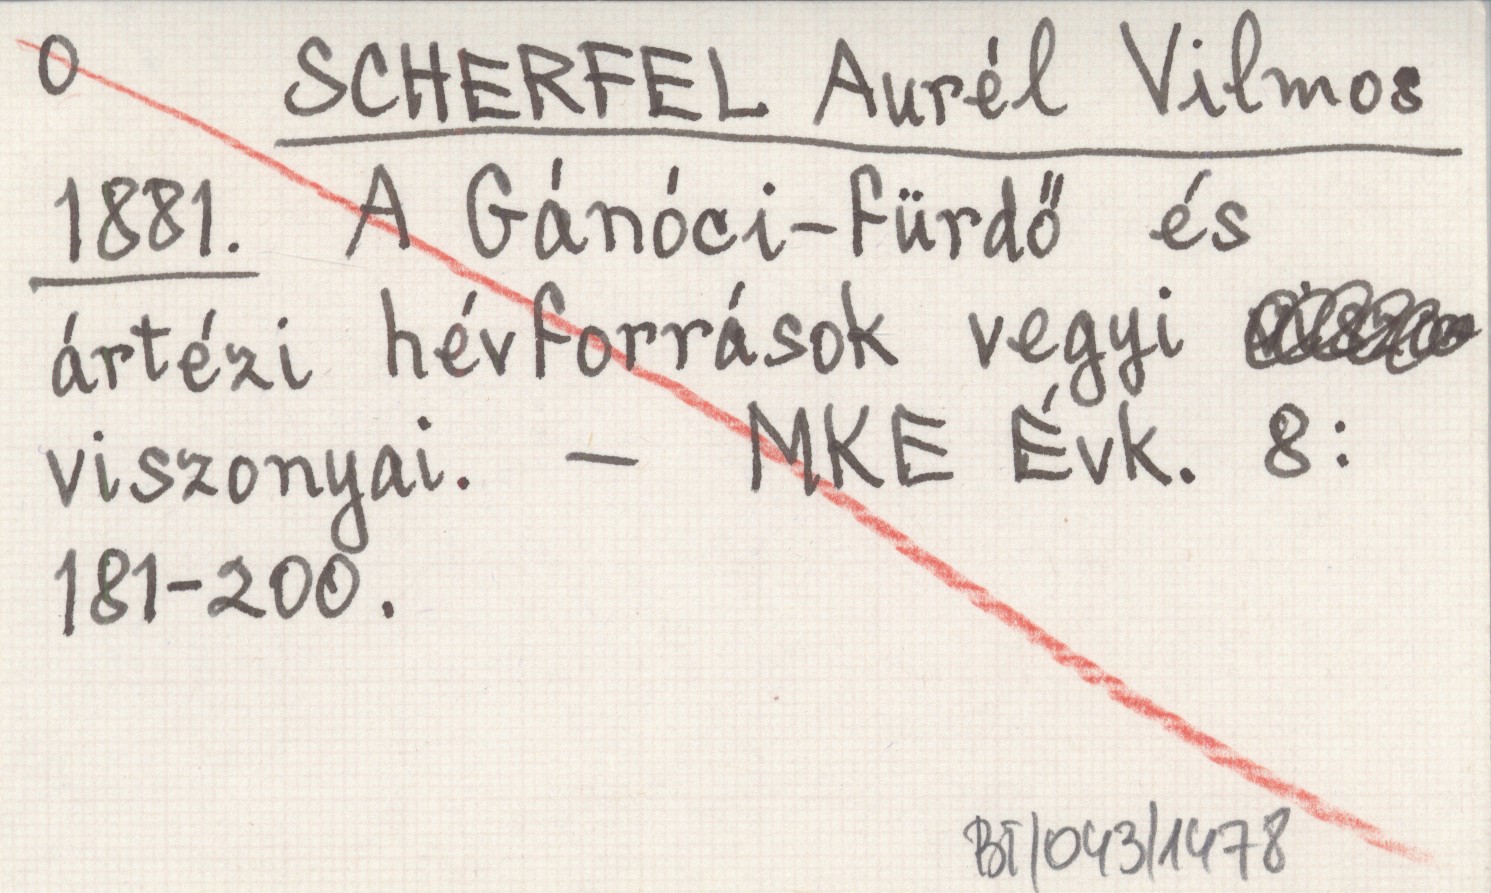 O SCHERFEL Aurél Vilmos
1881. A Gánóci-fürdő és
ártézi hévforrások vegyi
viszonyai. – MKE Évk. 8:
181-200.
BT/043/1478